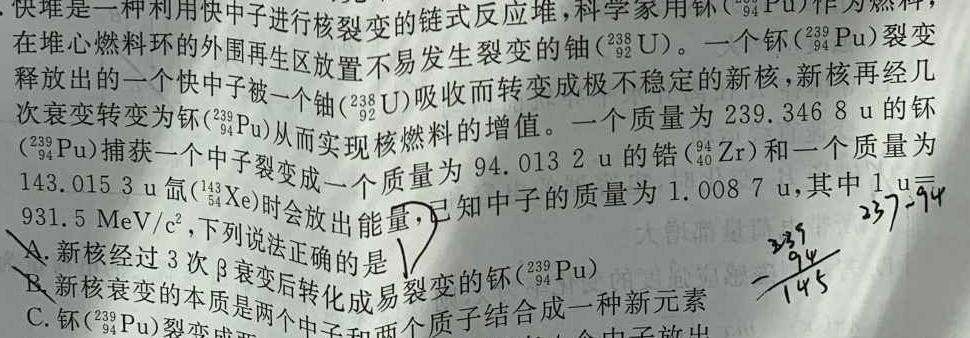 快堆是一种利用快中子进行核裂变的链式反应堆,科学家用钚(²³⁹₉₄Pu)作为燃料,
在堆心燃料环的外围再生区放置不易发生裂变的铀(²³⁸₉₂U)。一个钚(²³⁹₉₄Pu)裂变
释放出的一个快中子被一个铀(²³⁸₉₂U)吸收而转变成极不稳定的新核,新核再经几
次衰变转变为钚(²³⁹₉₄Pu)从而实现核燃料的增值。一个质量为 239.346 8 u 的钚
(²³⁹₉₄Pu)捕获一个中子裂变成一个质量为 94.013 2 u 的锆(⁹⁴₄₀Zr)和一个质量为
143.015 3 u 氙(¹⁴³₅₄Xe)时会放出能量,已知中子的质量为 1.008 7 u,其中 1 u=
931.5 MeV/c²,下列说法正确的是
237-94
239
94
-
145
A. 新核经过 3 次 β 衰变后转化成易裂变的钚(²³⁹₉₄Pu)
B. 新核衰变的本质是两个中子和两个质子结合成一种新元素
C. 钚(²³⁹₉₄Pu)裂变成两
个中子放出